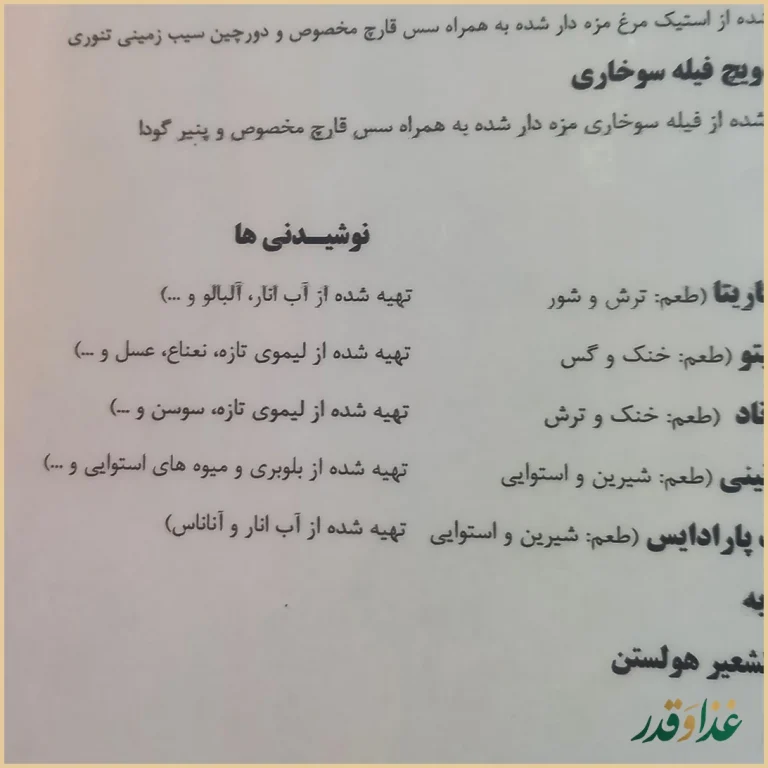 شده از استیک مرغ مزه دار شده به همراه سس قارچ مخصوص و دورچین سیب زمینی تنوری
فیله سوخاری
شده از فیله سوخاری مزه دار شده به همراه سس قارچ مخصوص و پنیر گودا
نوشیـدنی ها
(طعم: ترش و شور تهیه شده از آب انار، آلبالو و ...)
(طعم: خنک و گس تهیه شده از لیموی تازه، نعناع، عسل و ...)
(طعم: خنک و ترش تهیه شده از لیموی تازه، سوسن و ...)
(طعم: شیرین و استوایی تهیه شده از بلوبری و میوه های استوایی و ...)
پارادایس (طعم: شیرین و استوایی تهیه شده از آب انار و آناناس)
هولستن
غذا و قدر